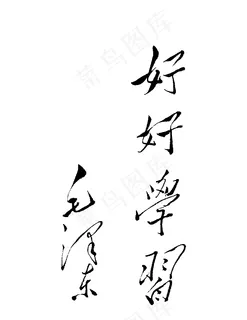 好好學習
毛泽东
菜鸟图库